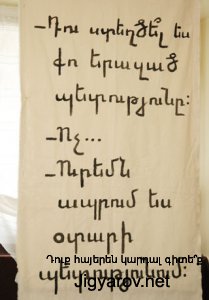 –Դու ստեղծե՞լ ես
քո երազած
պետությունը:
–Ոչ...
–Ուրեմն
ապրում ես
օտարի
պետությունում:
Դուք հայերեն կարդալ գիտե՞ք
Jigyarov.net